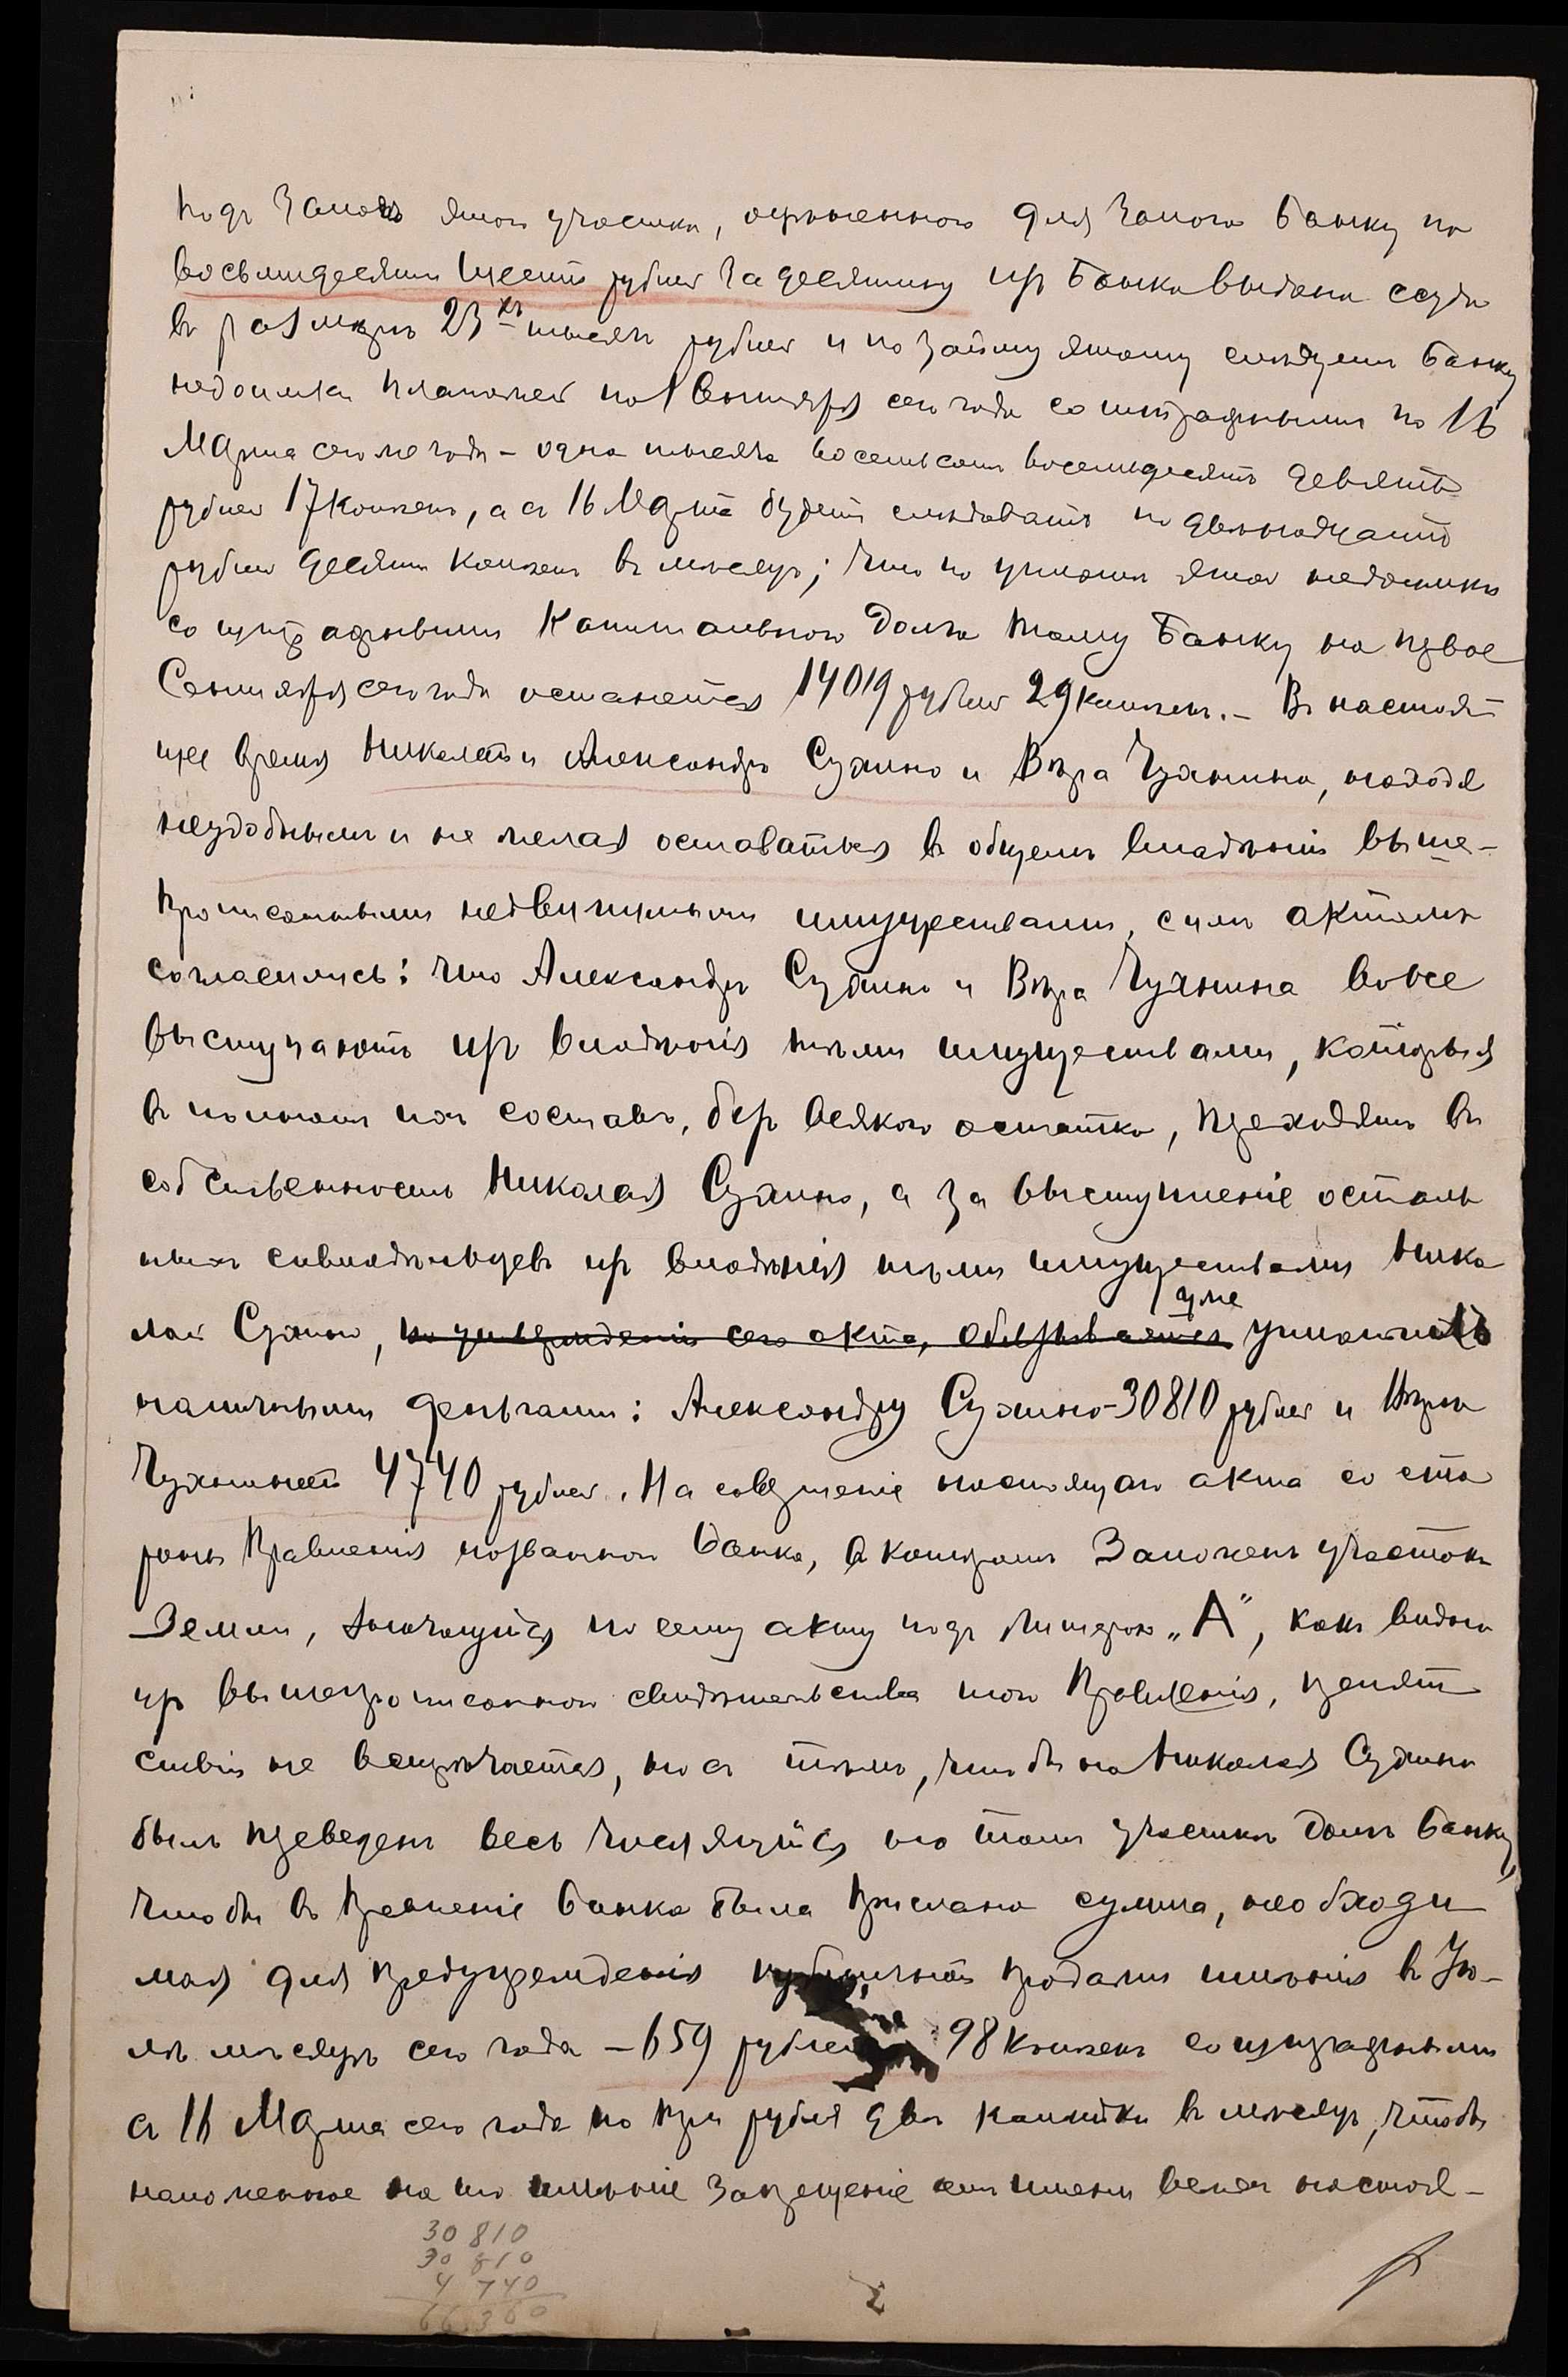 подъ залогъ этого участка, оцѣненного для залога Банку по
восьмидесяти шести рублей за десятину изъ Банка выдана ссуда
въ размѣрѣ 23хъ тысячъ рублей и по займу этому слѣдуетъ Банку
недоимка платежей по 1 Сентября сего года со штрафными по 16
Марта сего же года – одна тысяча восемьсотъ восемьдесятъ девять
рублей 17 копѣекъ, а съ 16 Марта будетъ слѣдовать по двѣнадцати
рублей десяти копѣекъ въ мѣсяцъ; что по уплатѣ этой недоимки
со штрафными капитальнаго долга тому Банку на первое
Сентября сего года останется 14019 рублей 29 копѣекъ. – Въ настоя
щее время Николай и Александръ Сухино и Вѣра Чухнина, находя
неудобнымъ и не желая оставаться въ общемъ владѣніи выше-
прописанными недвижимыми имуществами, симъ актомъ
согласились: что Александръ Сухино и Вѣра Чухнина вовсе
выступаютъ изъ владѣнія тѣми имуществами, которыя
въ полномъ ихъ составѣ, безъ всякого остатка, переходятъ въ
собственность Николая Сухино, а за выступленіе осталь
ныхъ совладѣльцевъ изъ владѣнія тѣми имуществами Нико
лай Сухино, по утвержденіи сего акта, обязывается уже уплатилъ
наличными деньгами: Александру Сухино – 30810 рублей и Вѣрѣ
Чухниной 4740 рублей. На совершеніе настоящаго акта со сто
роны Правленія названнаго Банка, въ которомъ заложенъ участокъ
Земли, значущійся по сему акту подъ литерою „А", какъ видно
изъ вышепрописанного свидѣтельства того Правленія, препят
ствія не встрѣчается, но съ тѣмъ, чтобы на Николая Сухино
былъ переведенъ весь числящійся на томъ участкѣ долгъ Банку,
чтобы въ Правленіе Банка была прислана сумма, необходи
мая для предупрежденія публичной продажи имѣнія въ Iю-
лѣ мѣсяцѣ сего года – 659 рублей 98 копѣекъ со штрафными
съ 16 Марта сего года по три рубля двѣ копѣйки въ мѣсяцъ, чтобы
наложенное на то имѣніе запрещеніе настоя-
30 810
30 810
4 740
66 360
2